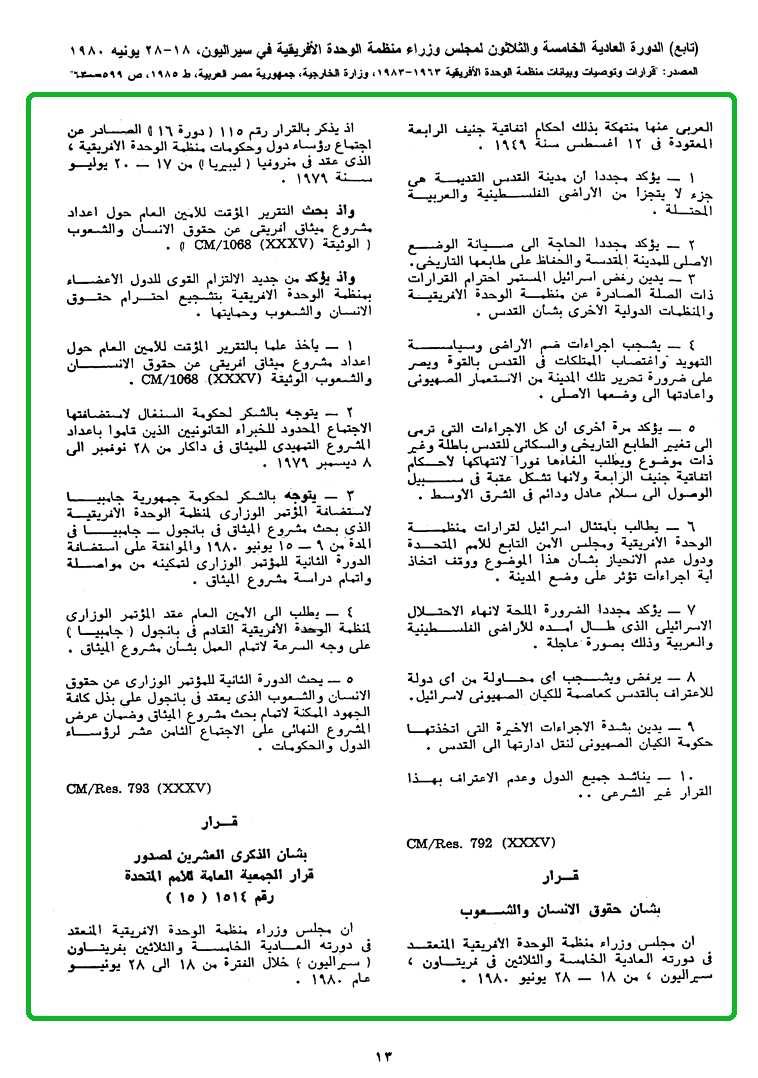 (تابع) الدورة العادية الخامسة والثلاثون لمجلس وزراء منظمة الوحدة الأفريقية في سيراليون، ١٨-٢٨ يونيه ١٩٨٠
المصدر: "قرارات وتوصيات وبيانات منظمة الوحدة الأفريقية ١٩٦٣-١٩٨٣، وزارة الخارجية، جمهورية مصر العربية، ط ١٩٨٥، ص ٥٩٩
العربى عنها منتهكة بذلك أحكام اتفاقية جنيف الرابعة
المعقودة فى ١٢ أغسطس سنة ١٩٤٩ .
١ — يؤكد مجددا أن مدينة القدس القديمة هى
جزء لا يتجزا من الأراضى الفلسطينية والعربية
المحتلة .
٢ — يؤكد مجددا الحاجة الى صيانة الوضع
الأصلى للمدينة المقدسة والحفاظ على طابعها التاريخى.
٣ — يدين رفض اسرائيل المستمر احترام القرارات
ذات الصلة الصادرة عن منظمة الوحدة الأفريقية
والمنظمات الدولية الأخرى بشأن القدس .
٤ — يشجب اجراءات ضم الأراضى وسياسة
التهويد واغتصاب الممتلكات فى القدس بالقوة ويصر
على ضرورة تحرير تلك المدينة من الاستعمار الصهيونى
واعادتها الى وضعها الأصلى .
٥ — يؤكد مرة أخرى أن كل الاجراءات التى ترمى
الى تغيير الطابع التاريخى والسكانى للقدس باطلة وغير
ذات موضوع ويطلب الغاءها فورا لانتهاكها لأحكام
اتفاقية جنيف الرابعة ولأنها تشكل عقبة فى سبيل
الوصول الى سلام عادل ودائم فى الشرق الأوسط .
٦ — يطالب بامتثال اسرائيل لقرارات منظمة
الوحدة الأفريقية ومجلس الأمن التابع للأمم المتحدة
ودول عدم الانحياز بشأن هذا الموضوع ووقف اتخاذ
أية اجراءات تؤثر على وضع المدينة .
٧ — يؤكد مجددا الضرورة الملحة لانهاء الاحتلال
الاسرائيلى الذى طال أمده للأراضى الفلسطينية
والعربية وذلك بصورة عاجلة .
٨ — يرفض ويشجب أى محاولة من أى دولة
للاعتراف بالقدس كعاصمة للكيان الصهيونى لاسرائيل.
٩ — يدين بشدة الاجراءات الأخيرة التى اتخذتها
حكومة الكيان الصهيونى لنقل ادارتها الى القدس .
١٠ — يناشد جميع الدول وعدم الاعتراف بهذا
القرار غير الشرعى ..
CM/Res. 792 (XXXV)
قرار
بشأن حقوق الانسان والشعوب
ان مجلس وزراء منظمة الوحدة الأفريقية المنعقد
فى دورته العادية الخامسة والثلاثين فى فريتاون ،
سيراليون ، من ١٨ — ٢٨ يونيو ١٩٨٠ .
اذ يذكر بالقرار رقم ١١٥ ( دورة ١٦ ) الصادر عن
اجتماع رؤساء دول وحكومات منظمة الوحدة الأفريقية ،
الذى عقد فى منروفيا ( ليبريا ) من ١٧ — ٢٠ يوليو
سنة ١٩٧٩ .
واذ بحث التقرير المؤقت للأمين العام حول اعداد
مشروع ميثاق أفريقى عن حقوق الانسان والشعوب
( الوثيقة CM/1068 (XXXV) ) .
واذ يؤكد من جديد الالتزام القوى للدول الأعضاء
بمنظمة الوحدة الأفريقية بتشجيع احترام حقوق
الانسان والشعوب وحمايتها .
١ — يأخذ علما بالتقرير المؤقت للأمين العام حول
اعداد مشروع ميثاق أفريقى عن حقوق الانسان
والشعوب الوثيقة CM/1068 (XXXV) .
٢ — يتوجه بالشكر لحكومة السنغال لاستضافتها
الاجتماع المحدود للخبراء القانونيين الذين قاموا باعداد
المشروع التمهيدى للميثاق فى داكار من ٢٨ نوفمبر الى
٨ ديسمبر ١٩٧٩ .
٣ — يتوجه بالشكر لحكومة جمهورية جامبيا
لاستضافة المؤتمر الوزارى لمنظمة الوحدة الأفريقية
الذى بحث مشروع الميثاق فى بانجول — جامبيا فى
المدة من ٩ — ١٥ يونيو ١٩٨٠ والموافقة على استضافة
الدورة الثانية للمؤتمر الوزارى لتمكينه من مواصلة
واتمام دراسة مشروع الميثاق .
٤ — يطلب الى الأمين العام عقد المؤتمر الوزارى
لمنظمة الوحدة الأفريقية القادم فى بانجول ( جامبيا )
على وجه السرعة لاتمام العمل بشأن مشروع الميثاق .
٥ — يحث الدورة الثانية للمؤتمر الوزارى عن حقوق
الانسان والشعوب الذى يعقد فى بانجول على بذل كافة
الجهود الممكنة لاتمام بحث مشروع الميثاق وضمان عرض
المشروع النهائى على الاجتماع الثامن عشر لرؤساء
الدول والحكومات .
CM/Res. 793 (XXXV)
قرار
بشأن الذكرى العشرين لصدور
قرار الجمعية العامة للأمم المتحدة
رقم ١٥١٤ ( ١٥ )
ان مجلس وزراء منظمة الوحدة الأفريقية المنعقد
فى دورته العادية الخامسة والثلاثين بفريتاون
( سيراليون ) خلال الفترة من ١٨ الى ٢٨ يونيو
عام ١٩٨٠ .
١٣